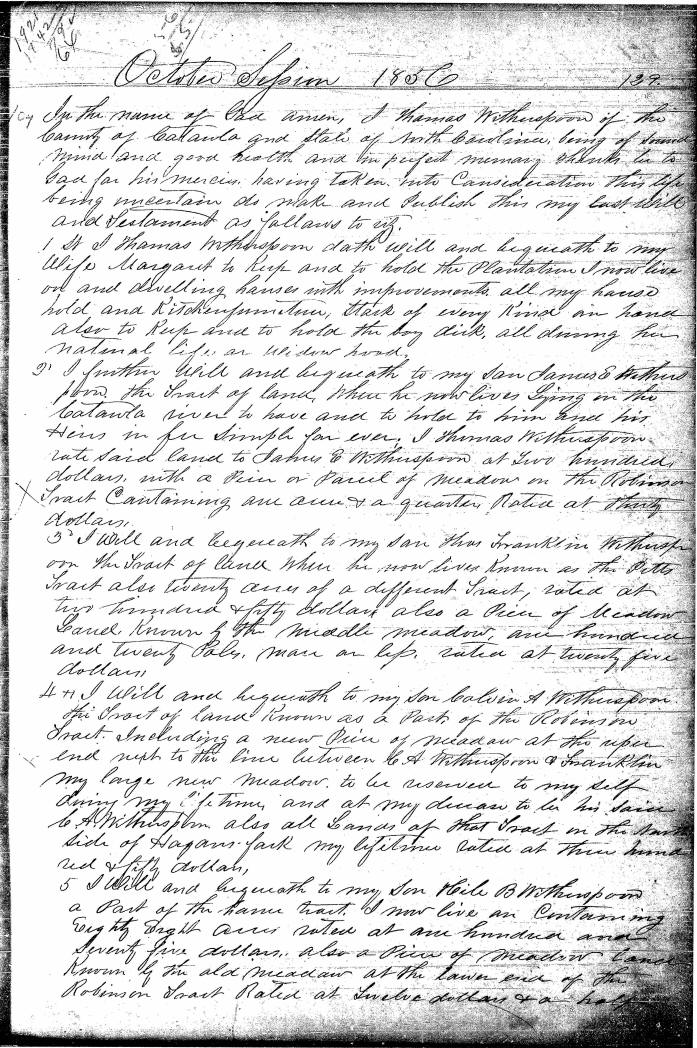 October Session 1856 129
In the name of God amen, I Thomas Witherspoon of the
County of Catawba and State of North Carolina, being of sound
mind and good health and in perfect memory thanks be to
God for his mercis, having taken into Consideration this life
being uncertain do make and Publish this my last Will
and Testament as follows to viz.
1 St I Thomas Witherspoon doth will and bequeath to my
Wife Margaret to Keep and to hold the Plantation I now live
on and dwelling houses with improvements, all my house
hold and Kitchen furniture, Stock of every Kind on hand
also to Keep and to hold the boy dick, all during her
natural life, or Widow hood.
2d I further Will and bequeath to my son James E Withers
poon, the Tract of land, Where he now lives Lying on the
Catawba river to have and to hold to him and his
Heirs in fee Simple for ever, I Thomas Witherspoon
rate said land to James E Witherspoon at Two hundred
dollars, with a Piece or Parcel of meadow on the Robinson
Tract Containing one acre & a quarter, Rated at Thirty
dollars,
3d I Will and bequeath to my son Thos Franklin Withersp
oon the Tract of land Where he now lives Known as the Pitts
Tract also twenty acres of a different Tract, rated at
two hundred & fifty dollars also a Piece of Meadow
Land, Known by the middle meadow, one hundred
and twenty Poles, more or less, rated at twenty five
dollars,
4 th I Will and bequeath to my son Calvin A Witherspoon
the Tract of land Known as a Part of the Robinson
Tract, Including a new Piece of meadow at the uper
end next to the line between C A Witherspoon & Franklin
my large new meadow, to be reserved to my self
during my lifetime, and at my decease to be his said
C A Witherspoon also all Lands of that Tract on the North
side of Hagans fork my lifetime rated at three hund
red & fifty dollars,
5 I Will and bequeath to my Son Hile B Witherspoon
a Part of the home tract, I now live on Containing
Eighty Eight acres rated at one hundred and
Seventy five dollars, also a Piece of meadow Land
Known by the old meadow at the lower end of the
Robinson Tract Rated at Twelve dollars & a half